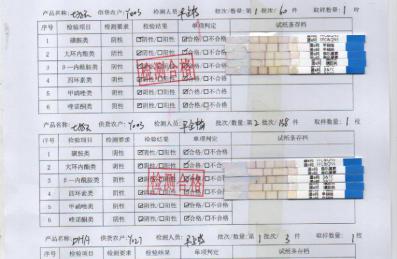 产品名称: 供货农户: Y003 检测人员: 批次/数量: 第 1 批次/ 60 件 取样数量: 1 枝
序号 检验项目 检测要求 检验结果 单项判定 试纸条存档
1 磺胺类 阴性 ☑阴性/☐阳性 ☑合格/☐不合格
2 大环内酯类 阴性 ☑阴性/☐阳性 ☑合格/☐不合格
3 β-内酰胺类 阴性 ☑阴性/☐阳性 ☑合格/☐不合格
4 四环素类 阴性 ☑阴性/☐阳性 ☑合格/☐不合格
5 甲硝唑类 阴性 ☑阴性/☐阳性 ☑合格/☐不合格
6 喹诺酮类 阴性 ☑阴性/☐阳性 ☑合格/☐不合格
检测合格
产品名称: 供货农户: Y003 检测人员: 批次/数量: 第 2 批次/ 件 取样数量: 1 枝
序号 检验项目 检测要求 检验结果 单项判定 试纸条存档
1 磺胺类 阴性 ☑阴性/☐阳性 ☑合格/☐不合格
2 大环内酯类 阴性 ☑阴性/☐阳性 ☑合格/☐不合格
3 β-内酰胺类 阴性 ☑阴性/☐阳性 ☑合格/☐不合格
4 四环素类 阴性 ☑阴性/☐阳性 ☑合格/☐不合格
5 甲硝唑类 阴性 ☑阴性/☐阳性 ☑合格/☐不合格
6 喹诺酮类 阴性 ☑阴性/☐阳性 ☑合格/☐不合格
检测合格
产品名称: 供货农户: Y027 检测人员: 批次/数量: 第 1 批次/ 3 件 取样数量: 1 枝
序号 检验项目 检测要求 检验结果 单项判定 试纸条存档